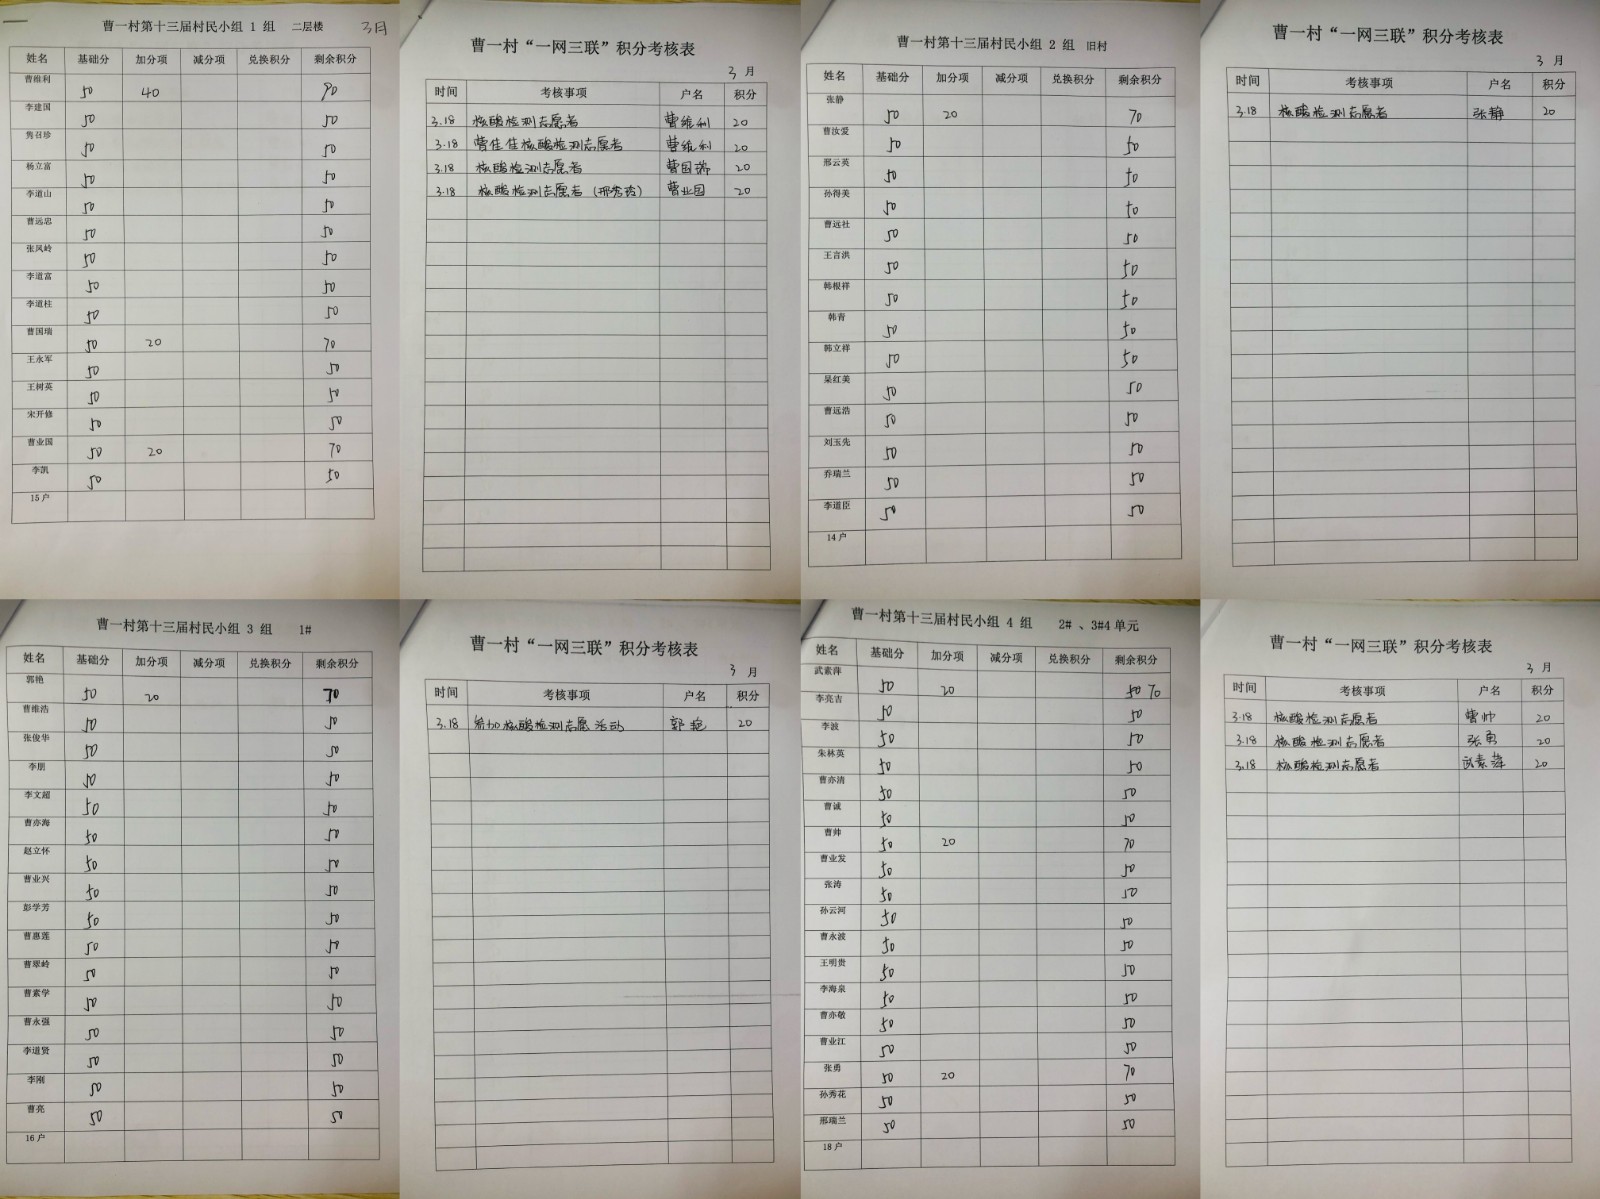 曹一村第十三届村民小组 1 组 二层楼 3月
姓名 基础分 加分项 减分项 兑换积分 剩余积分
曹维利 50 40 90
李建国 50 50
隽召珍 50 50
杨立富 50 50
李道山 50 50
曹远忠 50 50
张凤岭 50 50
李道富 50 50
李道柱 50 50
曹国瑞 50 20 70
王永军 50 50
王树英 50 50
宋开修 50 50
曹业国 50 20 70
李凯 50 50
15户
曹一村“一网三联”积分考核表
3 月
时间 考核事项 户名 积分
3.18 核酸检测志愿者 曹维利 20
3.18 曹佳佳核酸检测志愿者 曹维利 20
3.18 核酸检测志愿者 曹国瑞 20
3.18 核酸检测志愿者（邢秀玲） 曹业国 20
曹一村第十三届村民小组 2 组 旧村
姓名 基础分 加分项 减分项 兑换积分 剩余积分
张静 50 20 70
曹汝爱 50 50
邢云英 50 50
孙得美 50 50
曹远社 50 50
王吉洪 50 50
韩根祥 50 50
韩青 50 50
韩立祥 50 50
杲红美 50 50
曹远浩 50 50
刘玉先 50 50
乔瑞兰 50 50
李道臣 50 50
14户
曹一村“一网三联”积分考核表
3 月
时间 考核事项 户名 积分
3.18 核酸检测志愿者 张静 20
曹一村第十三届村民小组 3 组 1#
姓名 基础分 加分项 减分项 兑换积分 剩余积分
郭艳 50 20 70
曹维浩 50 50
张俊华 50 50
李朋 50 50
李文超 50 50
曹亦海 50 50
赵立怀 50 50
曹业兴 50 50
彭学芳 50 50
曹惠莲 50 50
曹翠岭 50 50
曹素学 50 50
曹永强 50 50
李道贤 50 50
李刚 50 50
曹亮 50 50
16户
曹一村“一网三联”积分考核表
3 月
时间 考核事项 户名 积分
3.18 参加核酸检测志愿活动 郭艳 20
曹一村第十三届村民小组 4 组 2# 、3#4单元
姓名 基础分 加分项 减分项 兑换积分 剩余积分
武素萍 50 20 50 70
李亮吉 50 50
李波 50 50
朱林英 50 50
曹亦清 50 50
曹诚 50 50
曹帅 50 20 70
曹业发 50 50
张涛 50 50
孙云河 50 50
曹永波 50 50
王明贵 50 50
李海泉 50 50
曹亦敬 50 50
曹业江 50 50
张勇 50 20 70
孙秀花 50 50
邢瑞兰 50 50
18户
曹一村“一网三联”积分考核表
3 月
时间 考核事项 户名 积分
3.18 核酸检测志愿者 曹帅 20
3.18 核酸检测志愿者 张勇 20
3.18 核酸检测志愿者 武素萍 20